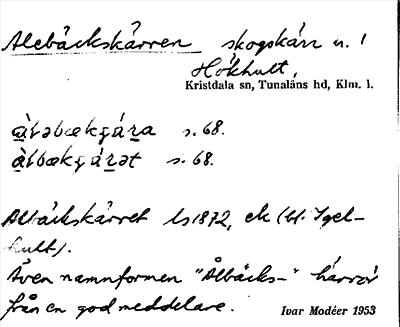 Alebäckskärren skogskärr u. 1
Hökhult,
Kristdala sn, Tunaläns hd, Klm. l.
s. 68.
s. 68.
Albäckskärret ls 1872, ek (H. Igel-
hult).
Även namnformen "Ålbäcks-" härrör
från en god meddelare.
Ivar Modéer 1953